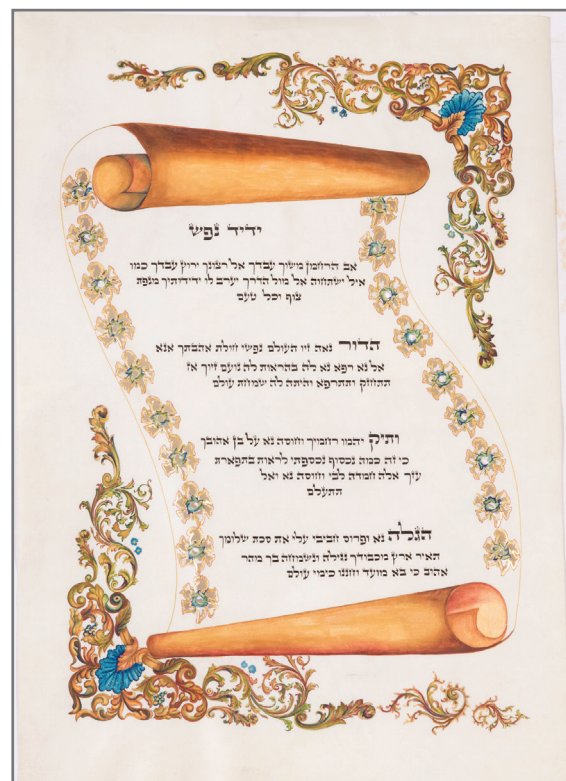 ידיד נפש
אב הרחמן משיך עבדך אל רצונך ירוץ עבדך כמו
איל ישתחוה אל מול הדרך יערב לו ידידותיך מנפת
צוף וכל טעם
הדור נאה זיו העולם נפשי חולת אהבתך אנא
אל נא רפא נא לה בהראות לה נועם זיוך אז
תתחזק ותתרפא והיתה לה שמחת עולם
ותיק יהמו רחמיך וחוסה נא על בן אהובך
כי זה כמה נכסוף נכספתי לראות בתפארת
עזך אלה חמדה לבי וחוסה נא ואל
תתעלם
הגלה נא ופרוס חביבי עלי את סכת שלומך
תאיר ארץ מכבודך נגילה ונשמחה בך מהר
אהוב כי בא מועד וחננו כימי עולם